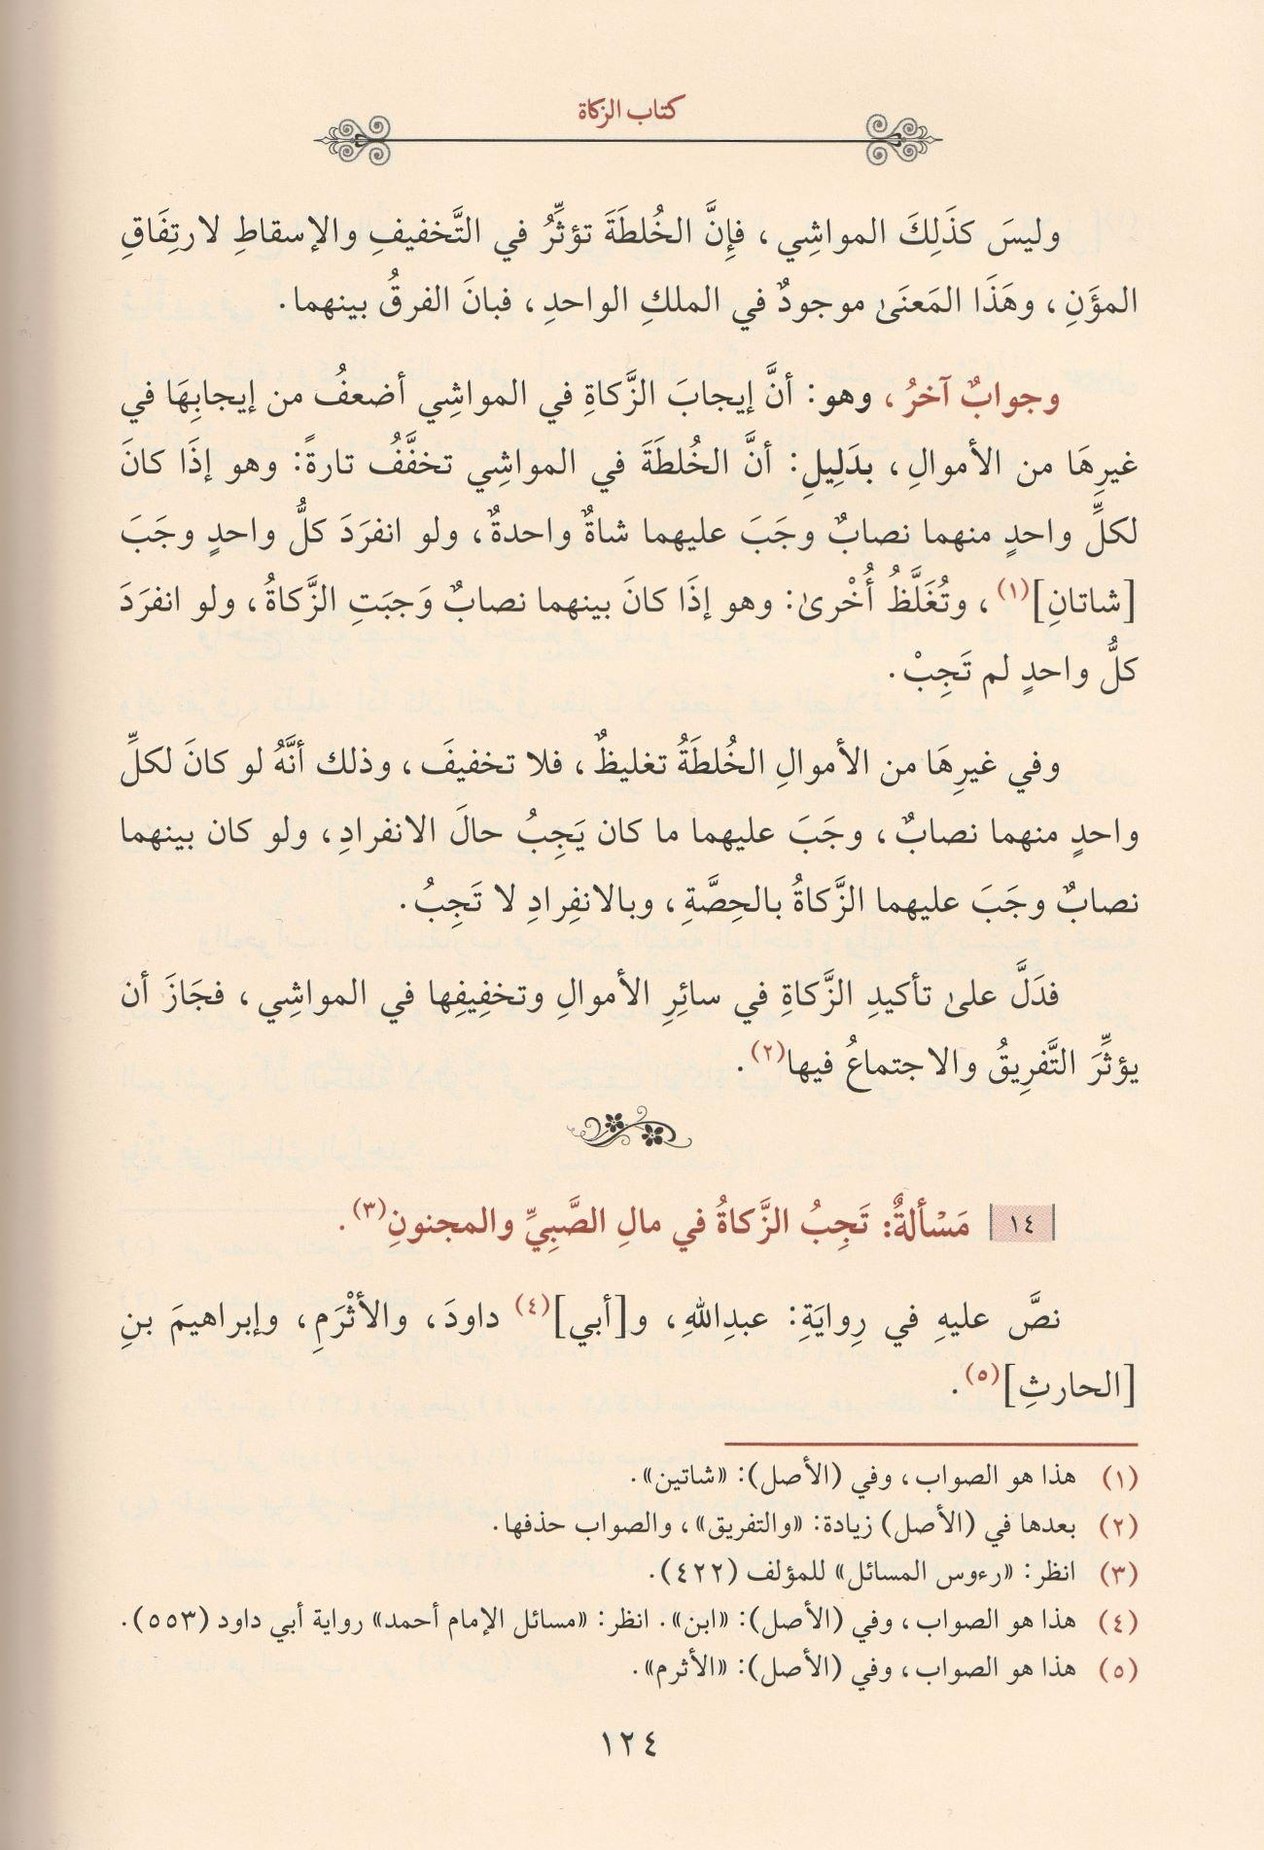 كتاب الزكاة
وليسَ كذَلِكَ المواشِي، فإِنَّ الخُلطَةَ تؤثِّرُ في التَّخفيفِ والإسقاطِ لارتِفَاقِ
المؤَنِ، وهَذَا المَعنَىٰ موجودٌ في الملكِ الواحدِ، فبانَ الفرقُ بينهما.
وجوابٌ آخرُ، وهو: أنَّ إيجابَ الزَّكاةِ في المواشِي أضعفُ من إيجابِهَا في
غيرِهَا من الأموالِ، بدَلِيلِ: أنَّ الخُلطَةَ في المواشِي تخفَّفُ تارةً: وهو إذَا كانَ
لكلِّ واحدٍ منهما نصابٌ وجَبَ عليهما شاةٌ واحدةٌ، ولو انفرَدَ كلُّ واحدٍ وجَبَ
[شاتانِ](١)، وتُغَلَّظُ أُخْرىٰ: وهو إذَا كانَ بينهما نصابٌ وَجبَتِ الزَّكاةُ، ولو انفرَدَ
كلُّ واحدٍ لم تَجِبْ.
وفي غيرِهَا من الأموالِ الخُلطَةُ تغليظٌ، فلا تخفيفَ، وذلك أنَّهُ لو كانَ لكلِّ
واحدٍ منهما نصابٌ، وجَبَ عليهما ما كان يَجِبُ حالَ الانفرادِ، ولو كان بينهما
نصابٌ وجَبَ عليهما الزَّكاةُ بالحِصَّةِ، وبالانفِرادِ لا تَجِبُ.
فدَلَّ علىٰ تأكيدِ الزَّكاةِ في سائِرِ الأموالِ وتخفِيفِها في المواشِي، فجَازَ أن
يؤثِّرَ التَّفرِيقُ والاجتماعُ فيها(٢).
١٤ مَسْألةٌ: تَجِبُ الزَّكاةُ في مالِ الصَّبِيِّ والمجنونِ(٣).
نصَّ عليهِ في رِوايَةِ: عبدِاللهِ، و[أبي](٤) داودَ، والأثْرَمِ، وإبراهيمَ بنِ
[الحارثِ](٥).
(١) هذا هو الصواب، وفي (الأصل): «شاتين».
(٢) بعدها في (الأصل) زيادة: «والتفريق»، والصواب حذفها.
(٣) انظر: «رءوس المسائل» للمؤلف (٤٢٢).
(٤) هذا هو الصواب، وفي (الأصل): «ابن». انظر: «مسائل الإمام أحمد» رواية أبي داود (٥٥٣).
(٥) هذا هو الصواب، وفي (الأصل): «الأثرم».
١٢٤